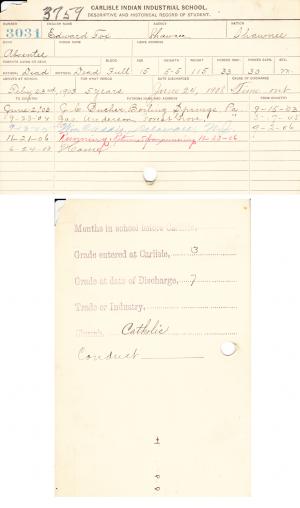 3759
CARLISLE INDIAN INDUSTRIAL SCHOOL.
DESCRIPTIVE AND HISTORICAL RECORD OF STUDENT.
NUMBER ENGLISH NAME AGENCY NATION
3031 Edward Fox Shawnee Shawnee
BAND INDIAN NAME HOME ADDRESS
Absentee
PARENTS LIVING OR DEAD BLOOD AGE HEIGHT WEIGHT FORCED INSP. FORCED EXPR. SEX
Dead Dead Full 15 5-5 115 33 30 m
ARRIVED AT SCHOOL FOR WHAT PERIOD DATE DISCHARGED CAUSE OF DISCHARGE
Feby 22nd, 1903 5 years June 24, 1908 Time out
TO COUNTRY PATRONS NAME AND ADDRESS FROM COUNTRY
June 2, 03 Boiling Springs, Pa 9-15-03
9-23-04 Jas. Anderson Forest Grove " 3-7-05
9-2-06
11-21-06 Running 11-23-06
6-24-08 Home
Months in school before Carlisle,
Grade entered at Carlisle, 3
Grade at date of Discharge, 7
Trade or Industry,
Church, Catholic
Conduct